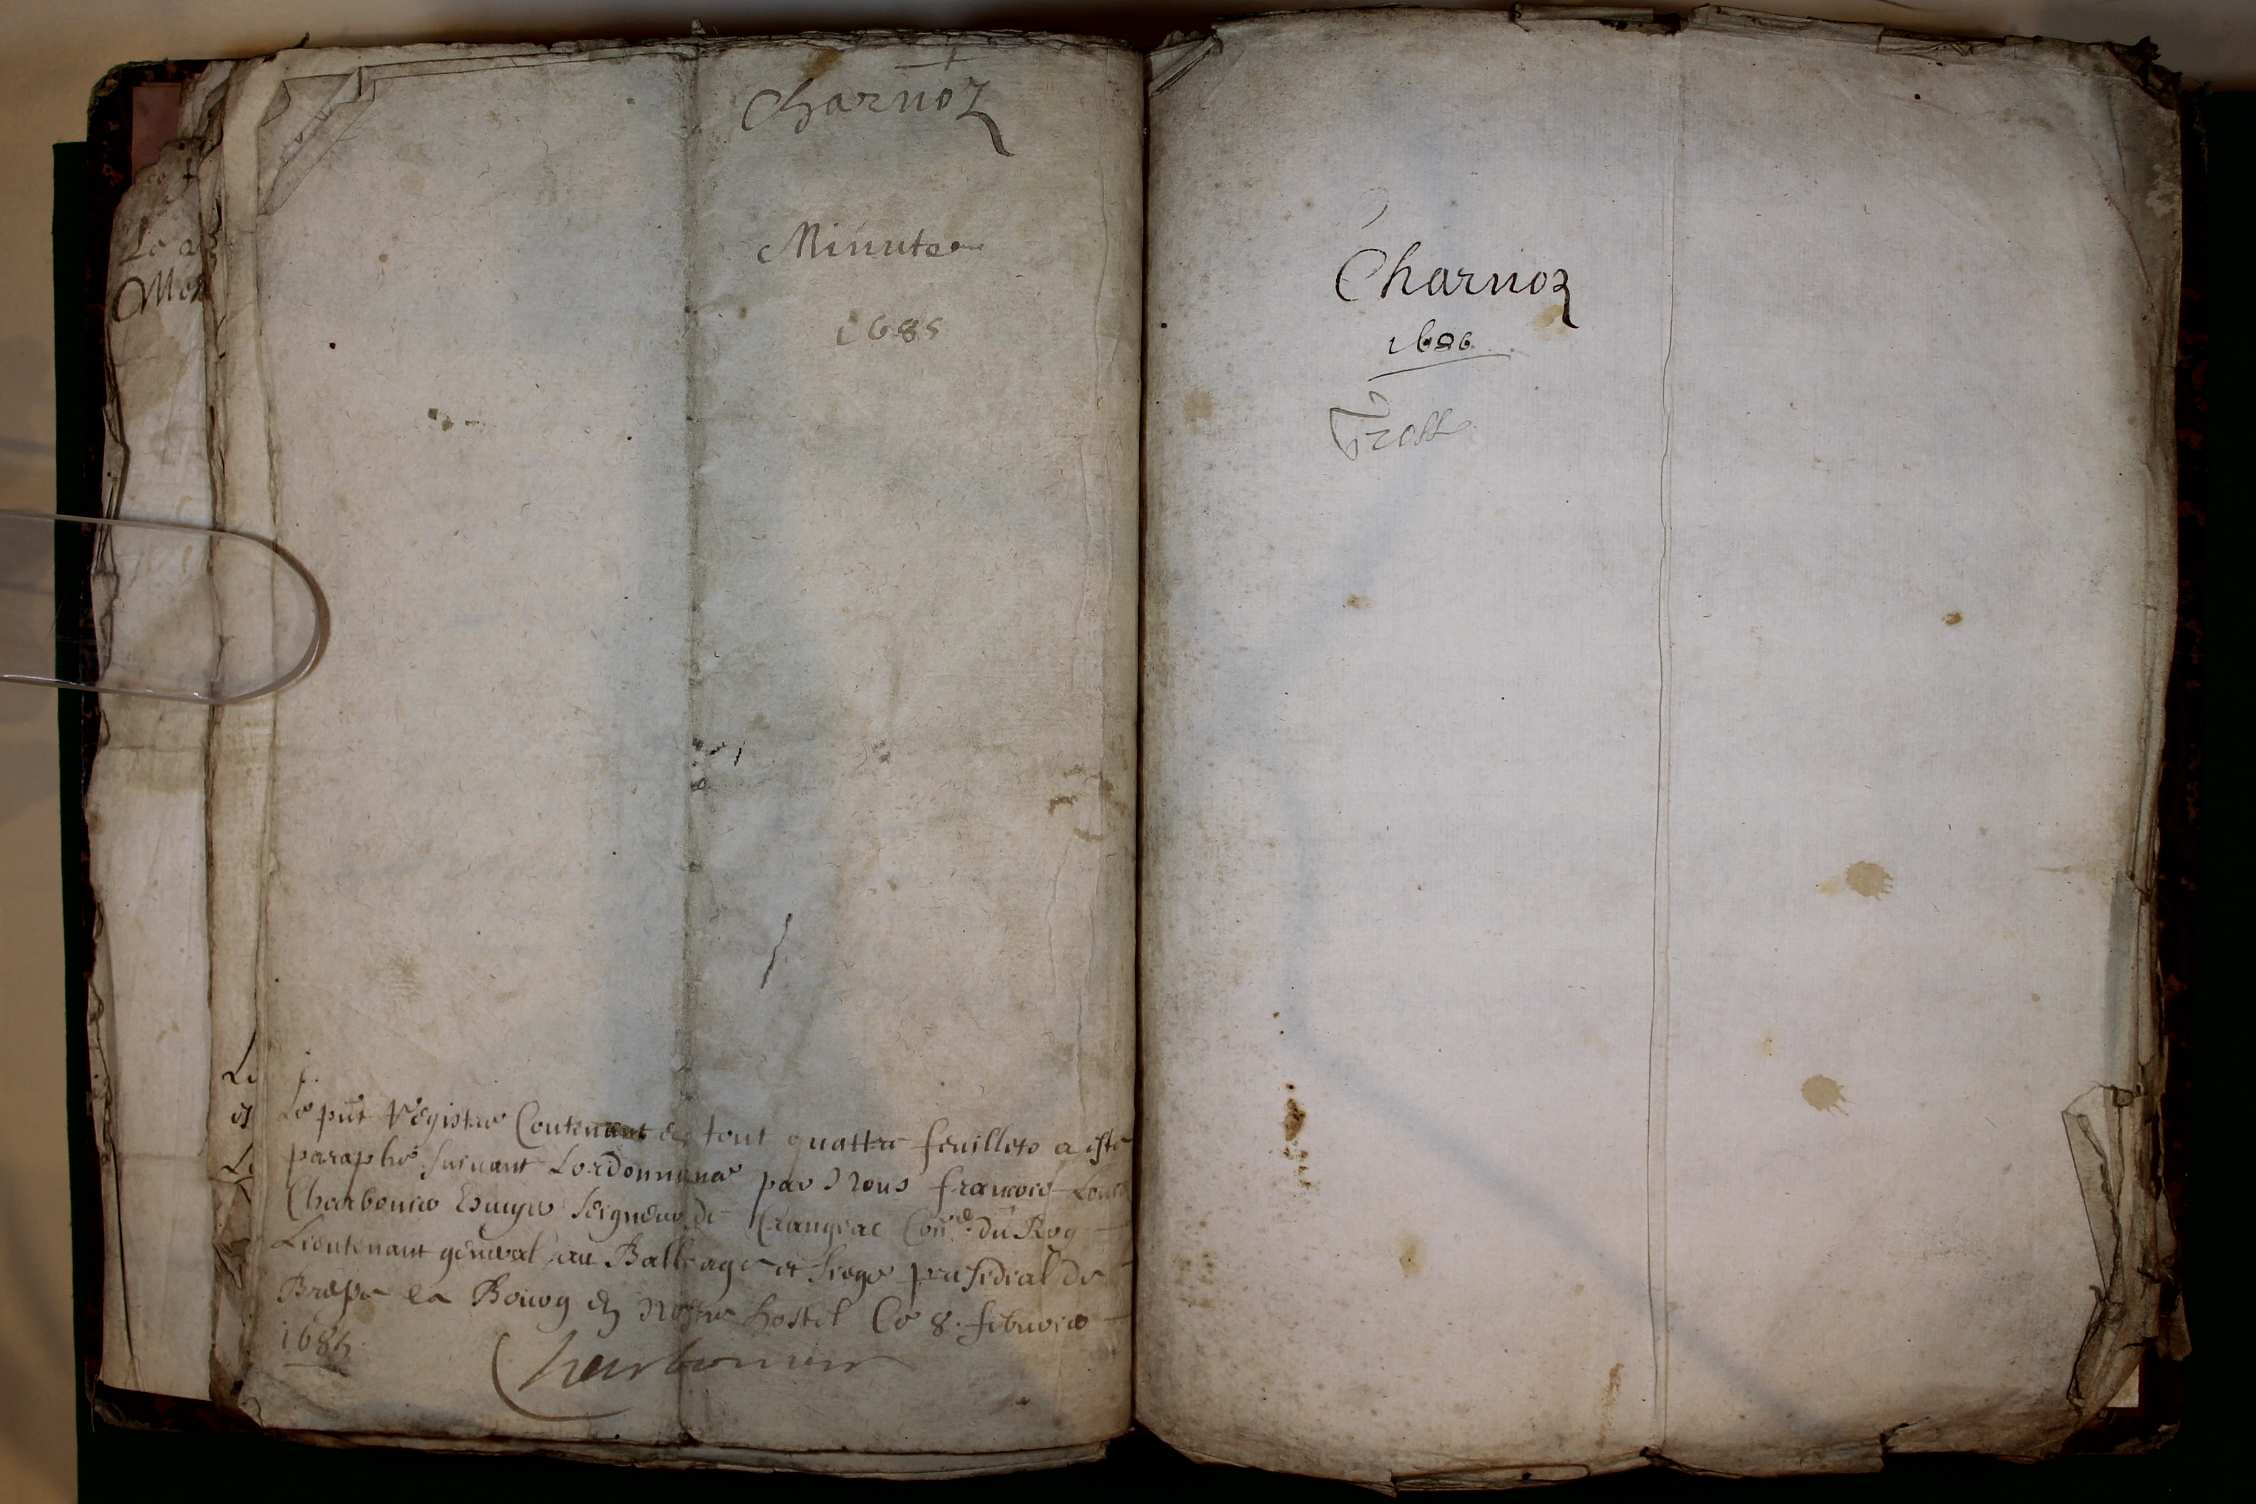 Charnoz
Minutte
1685
Le pnt Registre Contenant en tout quattre feuillets a esté
paraphé suivant Lordonnance par Nous francois Louis
Charbonnier Escuyer Seigneur de Crangeac Con.er du Roy
Lieutenant general au Balliage et siege presidial de
Bresse a Bourg en Nostre hostel Ce 8. febvrier
1685
Charbonnier
Charnoz
1686
Le
Mon